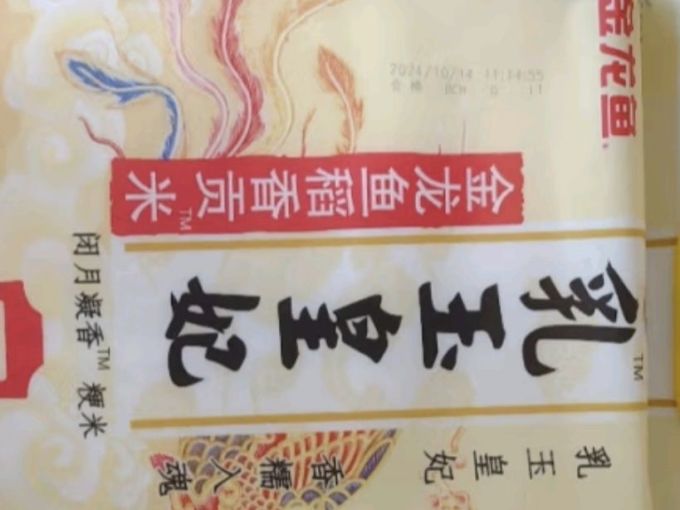 金龙鱼
2024/10/14 11:14:55
合格
金龙鱼稻香贡米™
乳玉皇妃™
闭月凝香™ 粳米
乳玉皇妃
香糯入魂